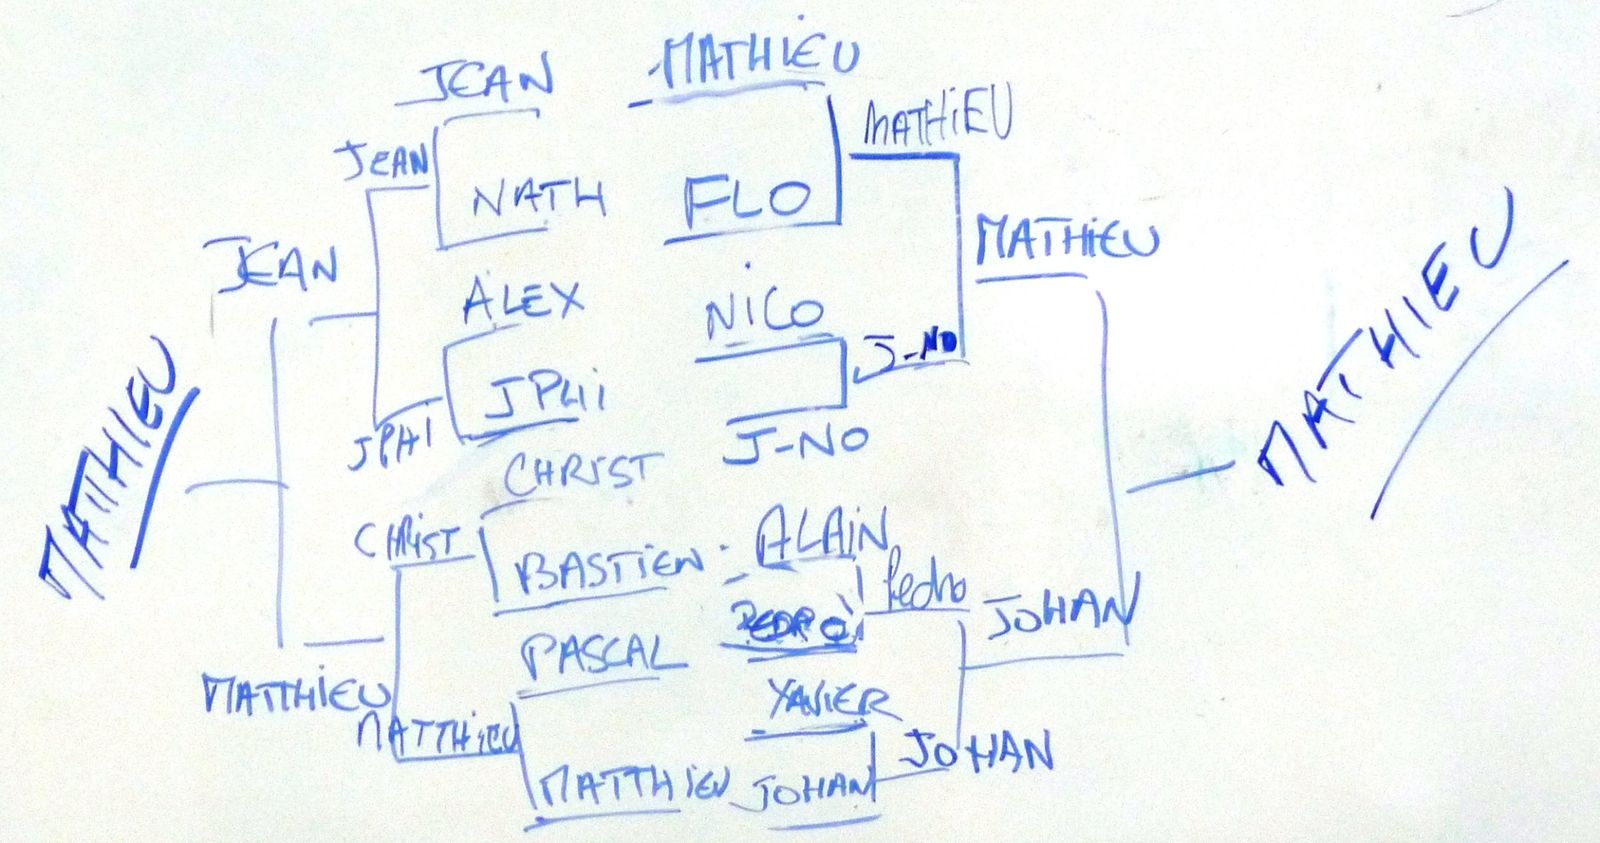 JEAN
MATHIEU
JEAN
MATHiEU
NATH
FLO
JEAN
MATHiEU
ALEX
NiCO
J-NO
MATTHIEU
JPHi
JPHI
J-NO
MATHIEU
CHRIST
CHRiST
BASTiEN
ALAiN
Pedro
PEDRO
JOHAN
PASCAL
MATTHiEU
XAViER
MATTHiEU
JOHAN
MATTHiEU
JOHAN